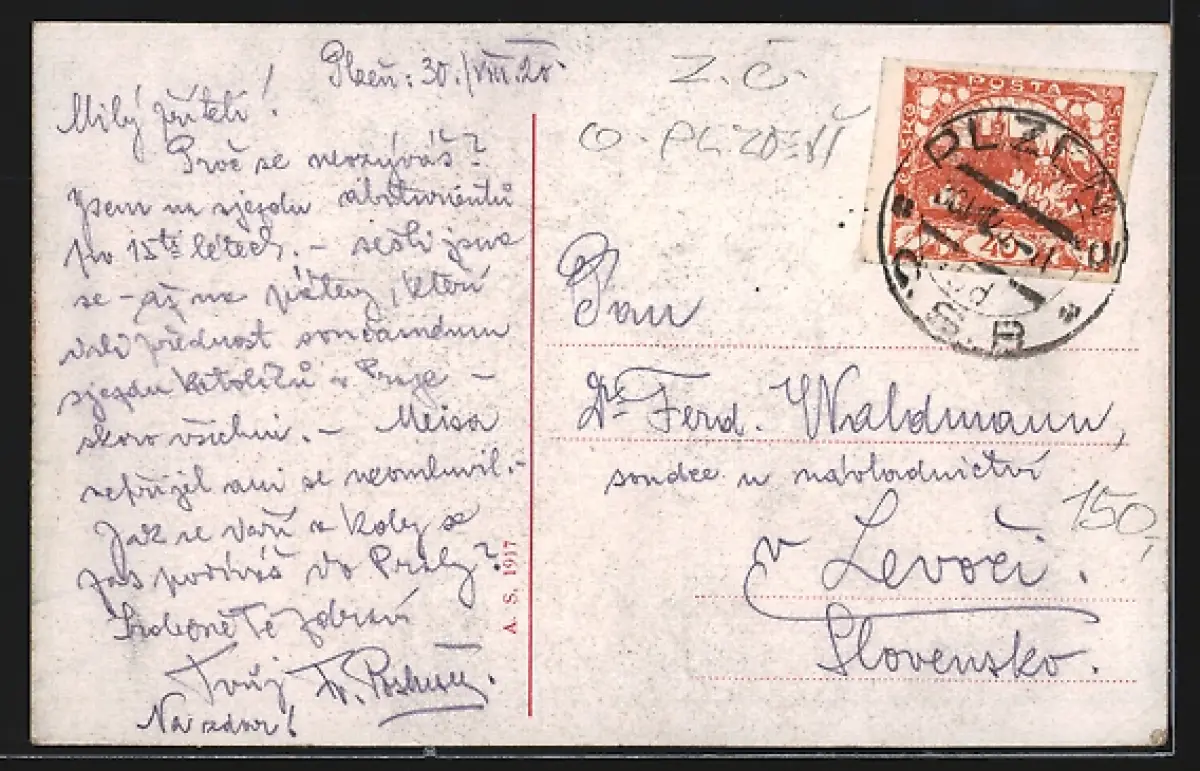 Plzeň: 30./VIII. 20.
Milý příteli!
Proč se neozýváš?
Jsem na sjezdu abiturientů
po 15ti letech. – sešli jsme
se – až na pátery, kteří
dali přednost současnému
sjezdu katolíků v Praze –
skoro všichni. – Meisa
nepřijel ani se neomluvil. –
Jak se daří a kdy se
zas podíváš do Prahy?
Srdečně Tě zdraví
Tvůj Fr.
Na zdar!
A. S. 1917
Z. Č.
O. PLZEŇ
POŠTA
PLZEŇ
Pan
Dr. Ferd. Waldmann,
soudce u návladnictví
v Levoči.
Slovensko.
150,